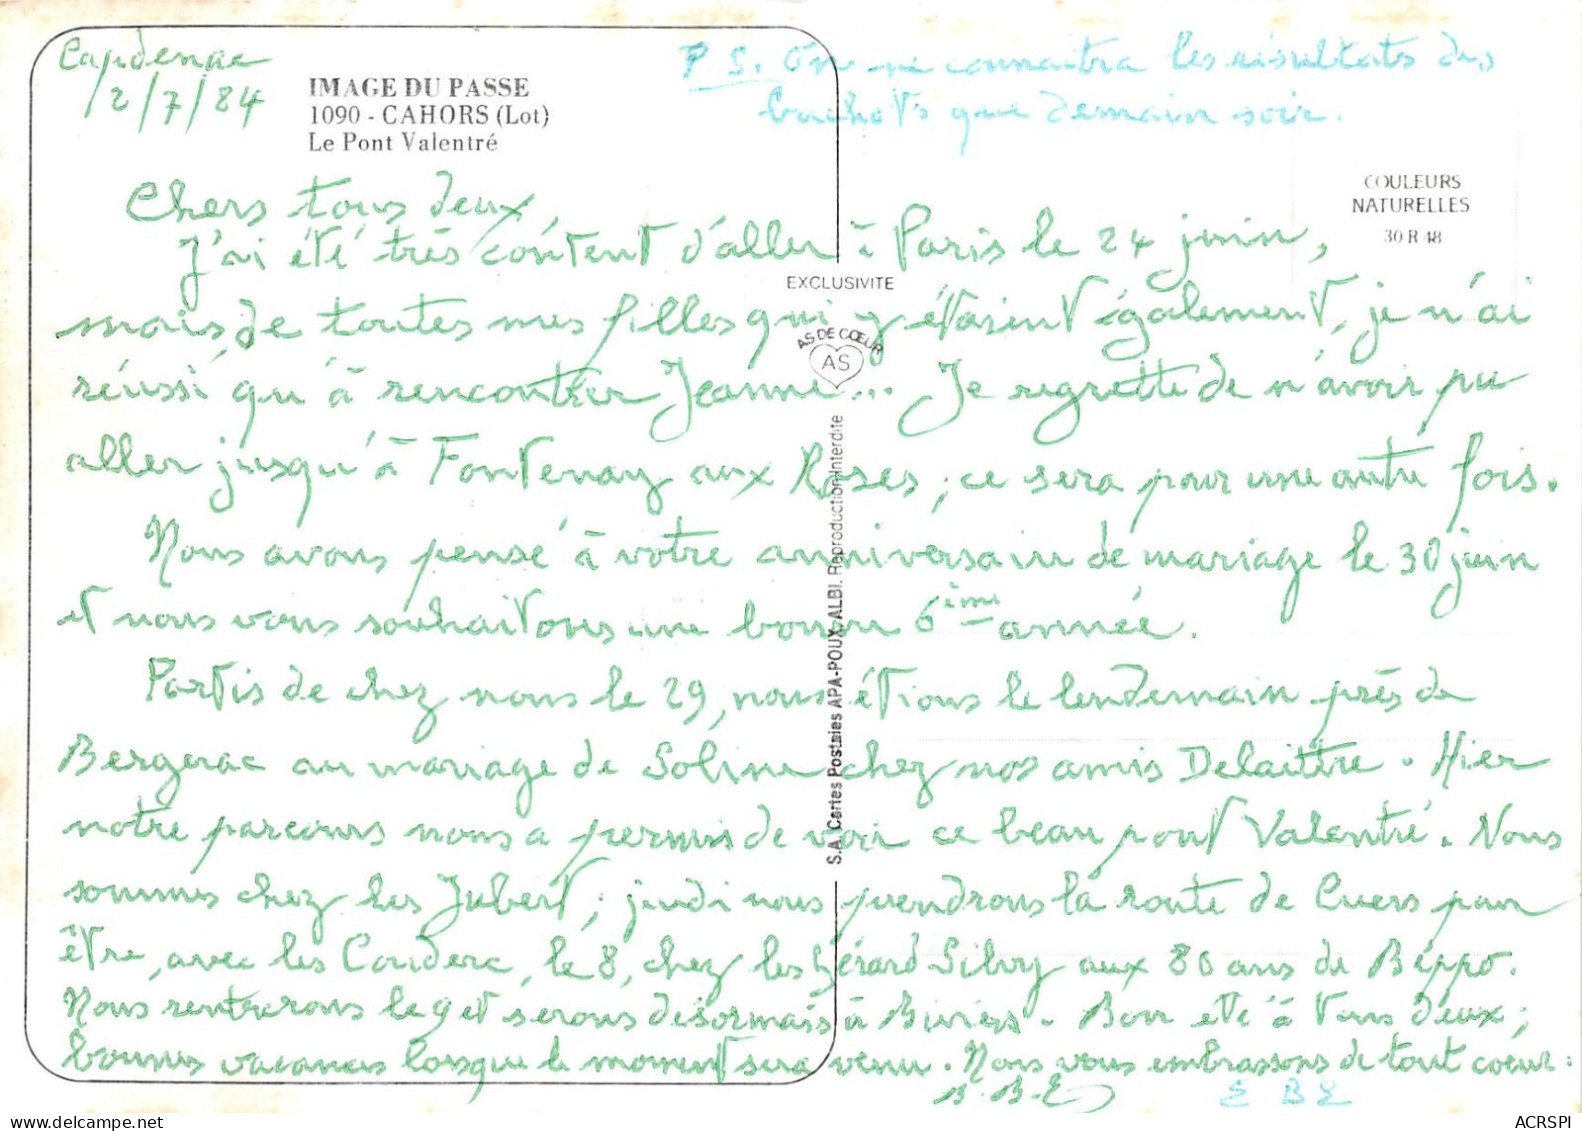 Capdenac
2/7/84
IMAGE DU PASSE
1090 - CAHORS (Lot)
Le Pont Valentré
P.S. On ne connaitra les résultats des
bachots que demain soir.
COULEURS
NATURELLES
30 R 48
Chers tous deux,
J'ai été très content d'aller à Paris le 24 juin,
EXCLUSIVITE
mais, de toutes mes filles qui y étaient également, je n'ai
AS DE CŒUR
AS
réussi qu'à rencontrer Jeanne... Je regrette de n'avoir pu
aller jusqu'à Fontenay aux Roses; ce sera pour une autre fois.
Nous avons pensé à votre anniversaire de mariage le 30 juin
et nous vous souhaitons une bonne 6ème année.
Partis de chez nous le 29, nous étions le lendemain près de
Bergerac au mariage de Soline chez nos amis Delaittre. Hier
notre parcours nous a permis de voir ce beau pont Valentré. Nous
sommes chez les Jubert; jeudi nous prendrons la route de Cuers pour
être, avec les Couderc, le 8, chez les Gérard Silvy aux 80 ans de Béppo.
Nous rentrerons le 9 et serons désormais à . Bon été à tous deux;
bonnes vacances lorsque le moment sera venu. Nous vous embrassons de tout coeur:
B.B.E
E B E
S.A. Cartes Postales APA-POUX-ALBI. Reproduction Interdite
ACRSPI